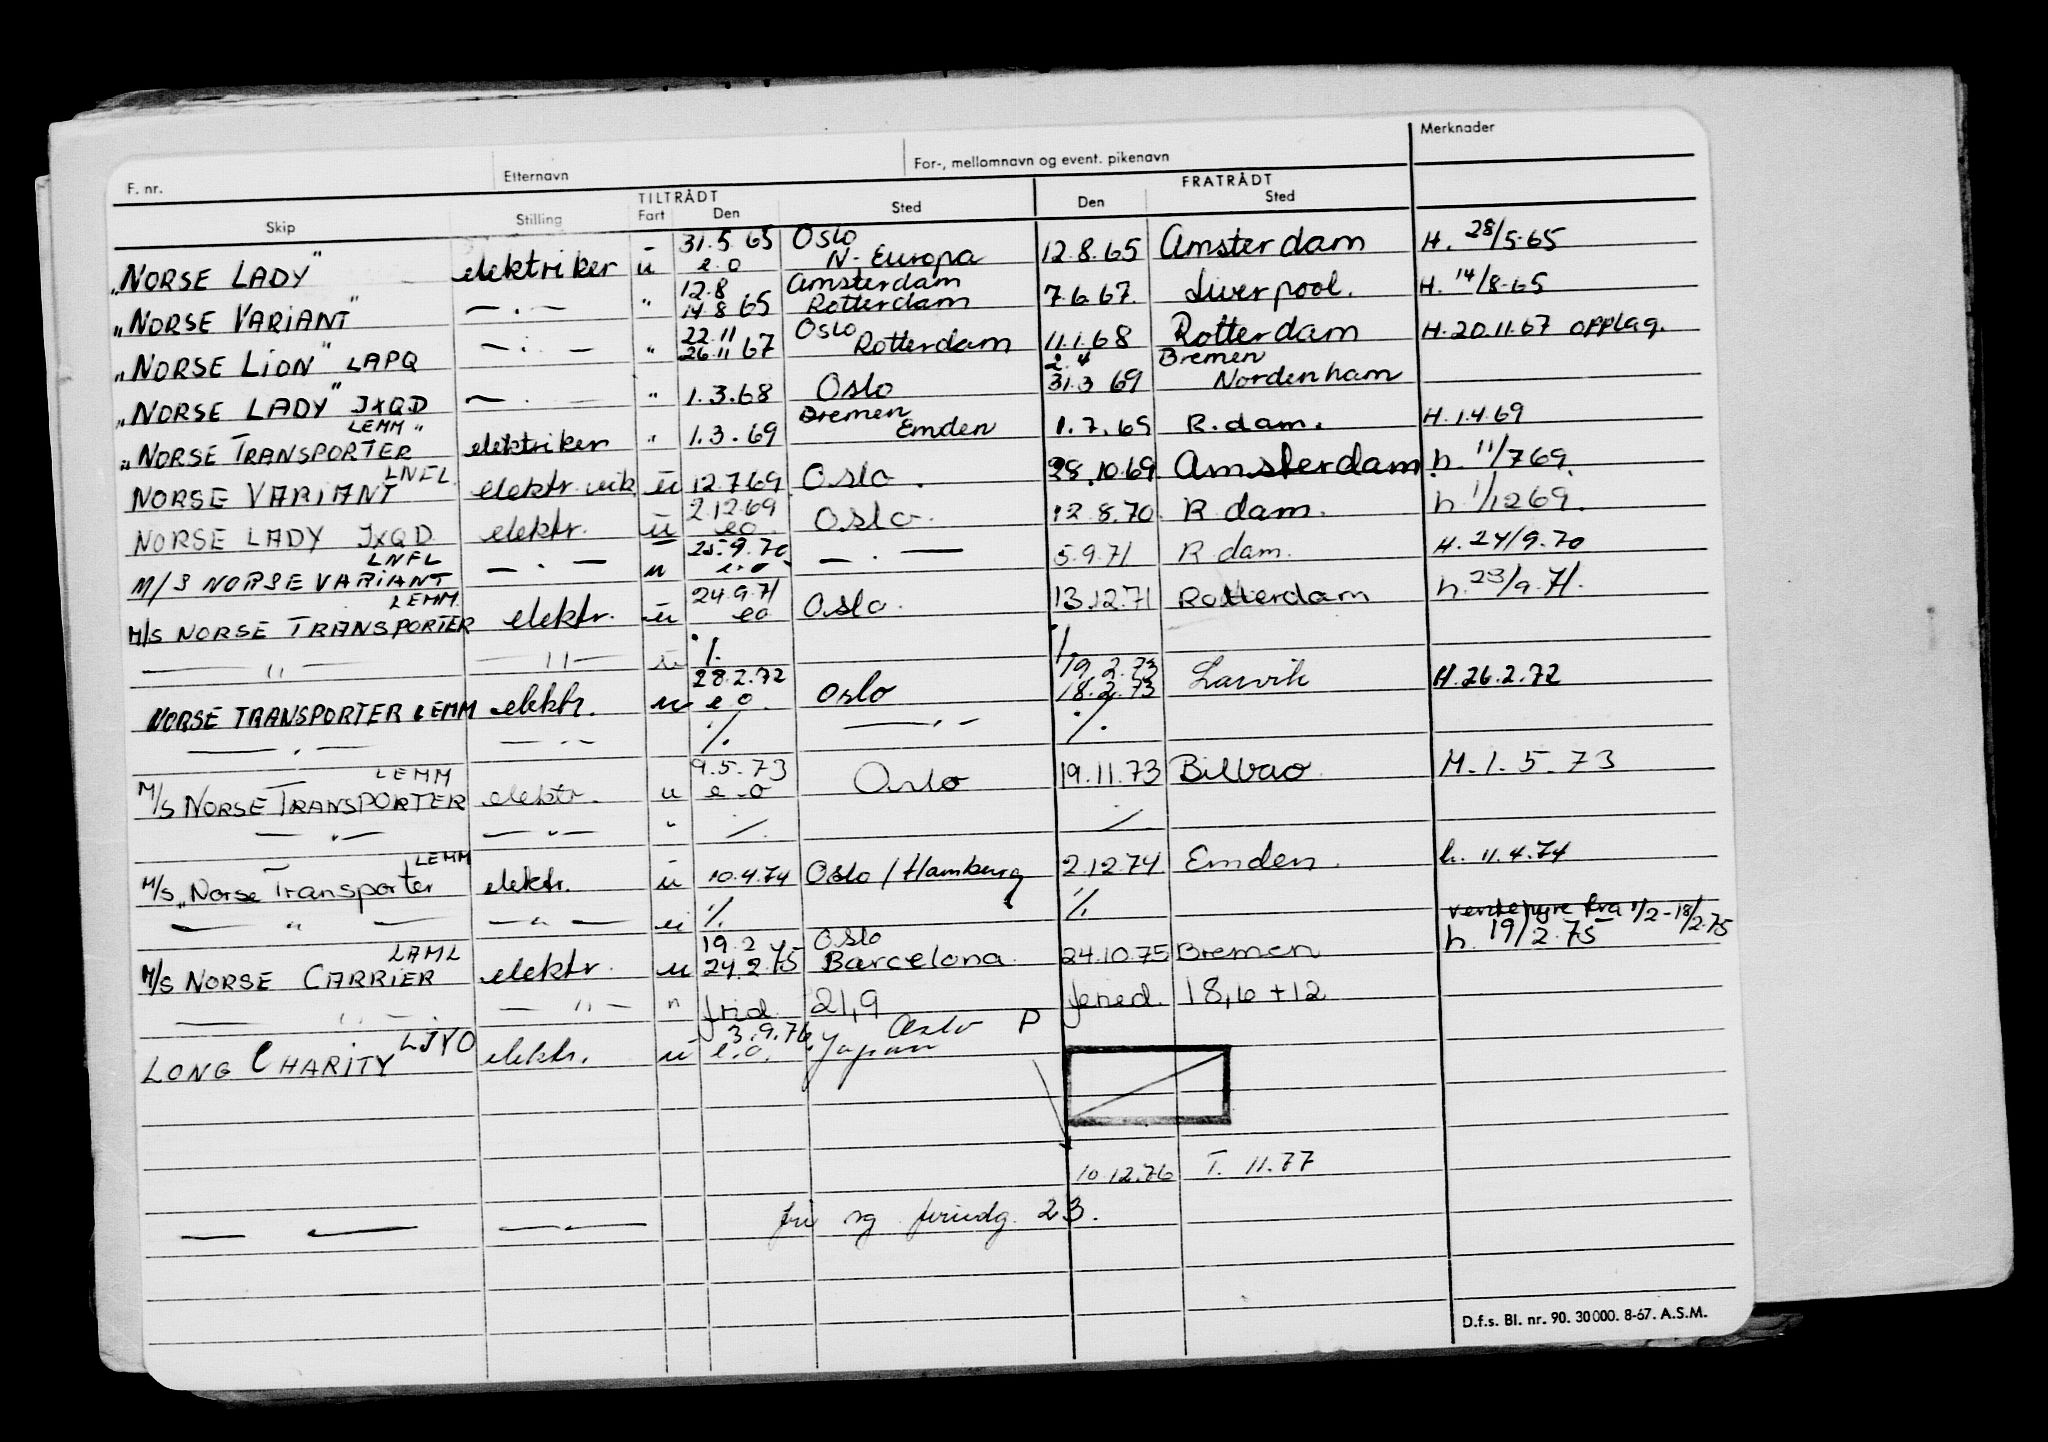 F. nr. Etternavn For-, mellomnavn og event. pikenavn Merknader
TILTRÅDT FRATRÅDT
Skip Stilling Fart Den Sted Den Sted
31.5.65 Oslo
"NORSE LADY" elektriker u e.o N-Europa 12.8.65 Amsterdam H. 28/5-65
12.8 Amsterdam
"NORSE VARIANT" — . — " 14.8 65 Rotterdam 7.6.67. Liverpool. H. 14/8-65
22.11 Oslo
"NORSE LION" LAPQ — . — " 26.11 67 Rotterdam 11.1.68 Rotterdam H. 20.11.67 opplag.
2.4 Bremen
"NORSE LADY" JXQD — . — " 1.3.68 Oslo 31.3 69 Nordenham
LEMM " Bremen
"NORSE TRANSPORTER elektriker " 1.3.69 Emden 1.7.69 R.dam. H.1.4.69
LNFL
NORSE VARIANT elektr. vik u 12.7.69 Oslo. 28.10.69 Amsterdam h. 11/7 69.
2.12.69
NORSE LADY JXQD elektr. u eo Oslo. 12.8.70. R dam. h 1/12 69.
LNFL 25.9.70
M/S NORSE VARIANT — . — u e.o. — . — 5.9.71 R dam. H. 24/9.70
LEMM 24.9.71
M/S NORSE TRANSPORTER elektr. u eo Oslo. 13.12.71 Rotterdam h. 23/9.71.
— " — — " — u ./. ./.
28.2.72 19.2.73
NORSE TRANSPORTER LEMM elektr. u e o. Oslo 18.2.73 Larvik H.26.2.72
— . — — . — ./. — . — ./.
LEMM 9.5.73
M/S NORSE TRANSPORTER elektr. u e.o Oslo 19.11.73 Bilbao. H. 1. 5. 73
— " — — " — " ./. ./.
LEMM
M/S "Norse Transporter elektr. u 10.4.74 Oslo / Hamburg 2.12.74 Emden. h. 11.4.74
— " — — " — u ./. ./. ventehyre fra 1/2-18/2.75
LAML 19.2 Oslo h. 19/2.75
M/S NORSE CARRIER elektr. u 24.2.75 Barcelona 24.10.75 Bremen
— " — — " — " frid. 21,9 feried. 18,6 +12
LJYO 3.9.76 Oslo P
LONG CHARITY elektr. u e.o. Japan
10 12.76 T. 11.77
— — — . — fri og feriedg. 23.
D.f.s. Bl. nr. 90. 30000. 8-67. A.S.M.